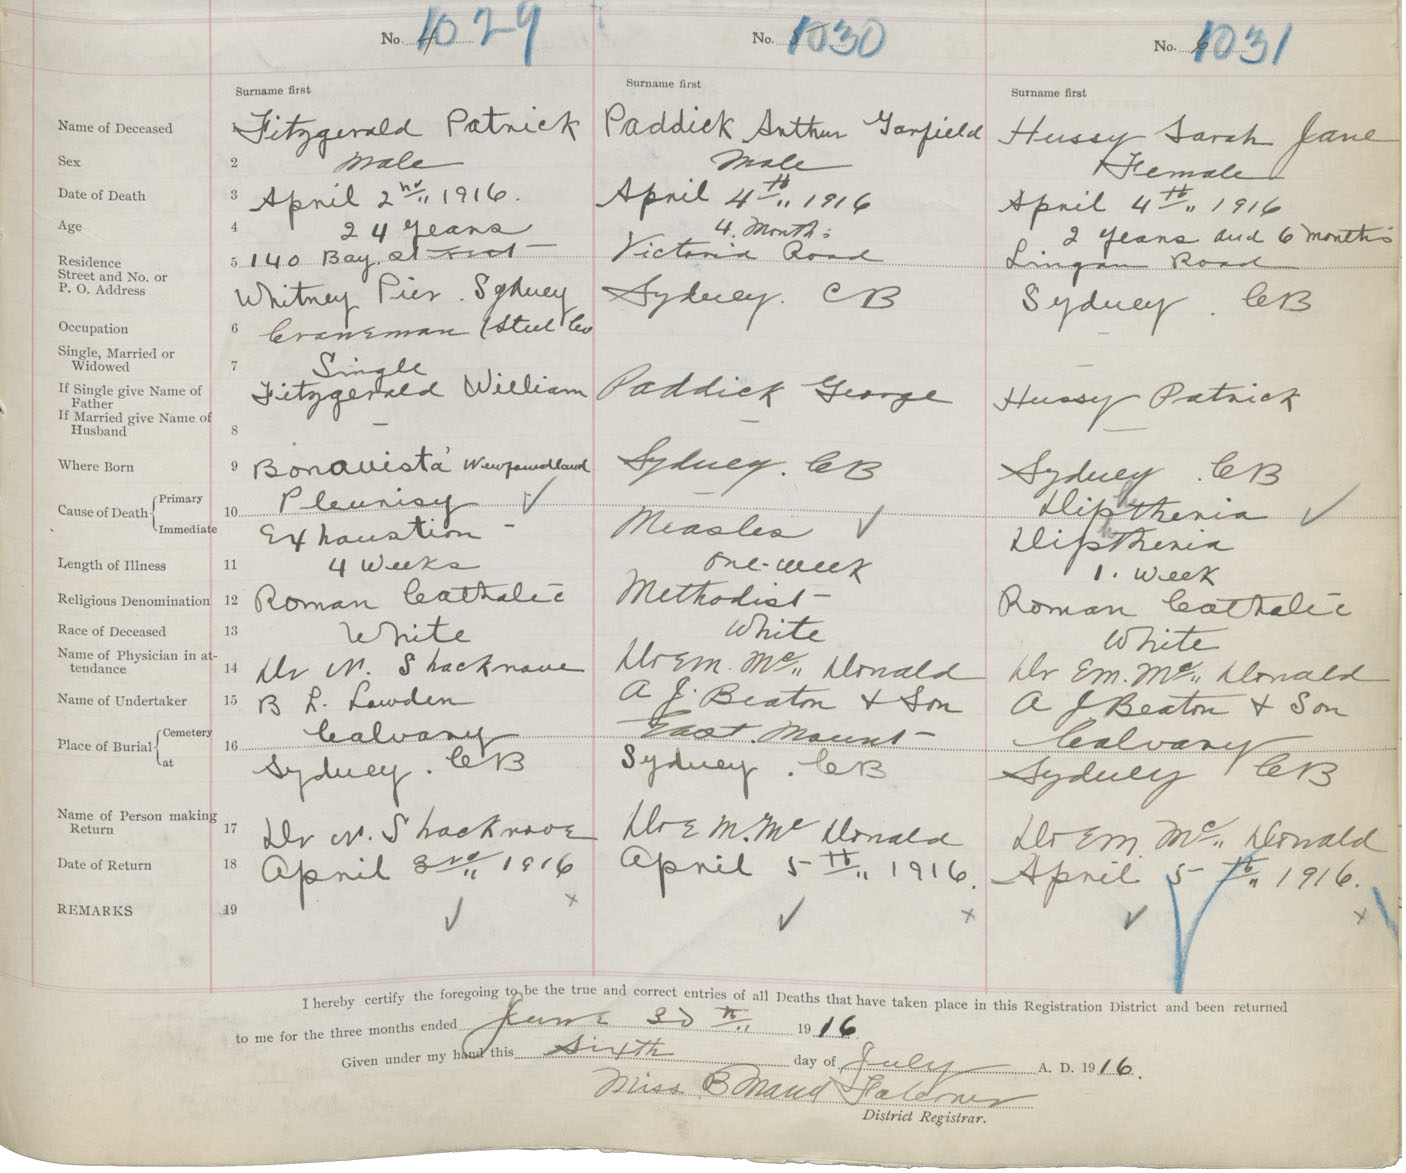 No. 1029 No. 1030 No. 1031
Surname first Surname first Surname first
Name of Deceased 1 Fitzgerald Patrick Paddick Arthur Garfield Hussy Sarah Jane
Sex 2 Male Male Female
Date of Death 3 April 2nd,, 1916. April 4th,, 1916 April 4th,, 1916
Age 4 24 years 4. Months 2 years and 6 months
Residence 5 140 Bay. st Victoria Road Lingan Road
Street and No. or
P. O. Address Whitney Pier. Sydney Sydney. CB Sydney. CB
Occupation 6 Craneman (Steel Co –
Single, Married or
Widowed 7 Single –
If Single give Name of
Father Fitzgerald William Paddick George Hussy Patrick
If Married give Name of
Husband 8 – – –
Where Born 9 Bonavista Newfoundland Sydney. CB Sydney. CB
Cause of Death { Primary 10 Pleurisy ✓ – Diphtheria ✓
Immediate Exhaustion - Measles ✓ Diphtheria
Length of Illness 11 4 Weeks one-week 1. Week
Religious Denomination 12 Roman Catholic Methodist Roman Catholic
Race of Deceased 13 White White White
Name of Physician in at-
tendance 14 Dr N. Shacknove Dr EM. Mc,, Donald Dr EM. Mc,, Donald
Name of Undertaker 15 B L. Lowden A J. Beaton & Son A J Beaton & Son
Place of Burial { Cemetery 16 Calvary East. Mount Calvary
at Sydney. CB Sydney. CB Sydney CB
Name of Person making
Return 17 Dr N. Shacknove Dr E M. Mc Donald Dr EM. Mc,, Donald
Date of Return 18 April 3rd,, 1916 April 5th,, 1916. April 5th,, 1916.
REMARKS 19 ✓ x ✓ x ✓ x
I hereby certify the foregoing to be the true and correct entries of all Deaths that have taken place in this Registration District and been returned
to me for the three months ended June 30th,, 1916
Given under my hand this sixth day of July A. D. 1916.
Miss B Maud Falconer
District Registrar.